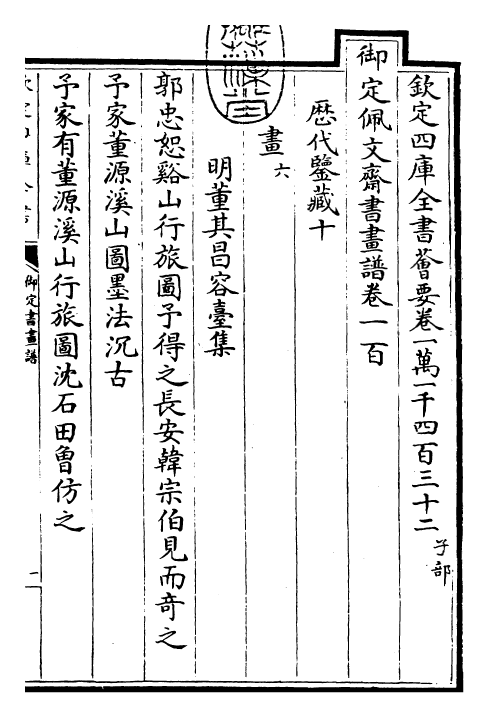 欽定四庫全書薈要卷一萬一千四百三十二 子部
御定佩文齋書畫譜卷一百
歴代鑒藏十
畫 六
明董其昌容臺集
郭忠恕谿山行旅圖予得之長安韓宗伯見而奇之
予家董源溪山圖墨法沉古
予家有董源溪山行旅圖沈石田曾仿之
御定書畫譜
一